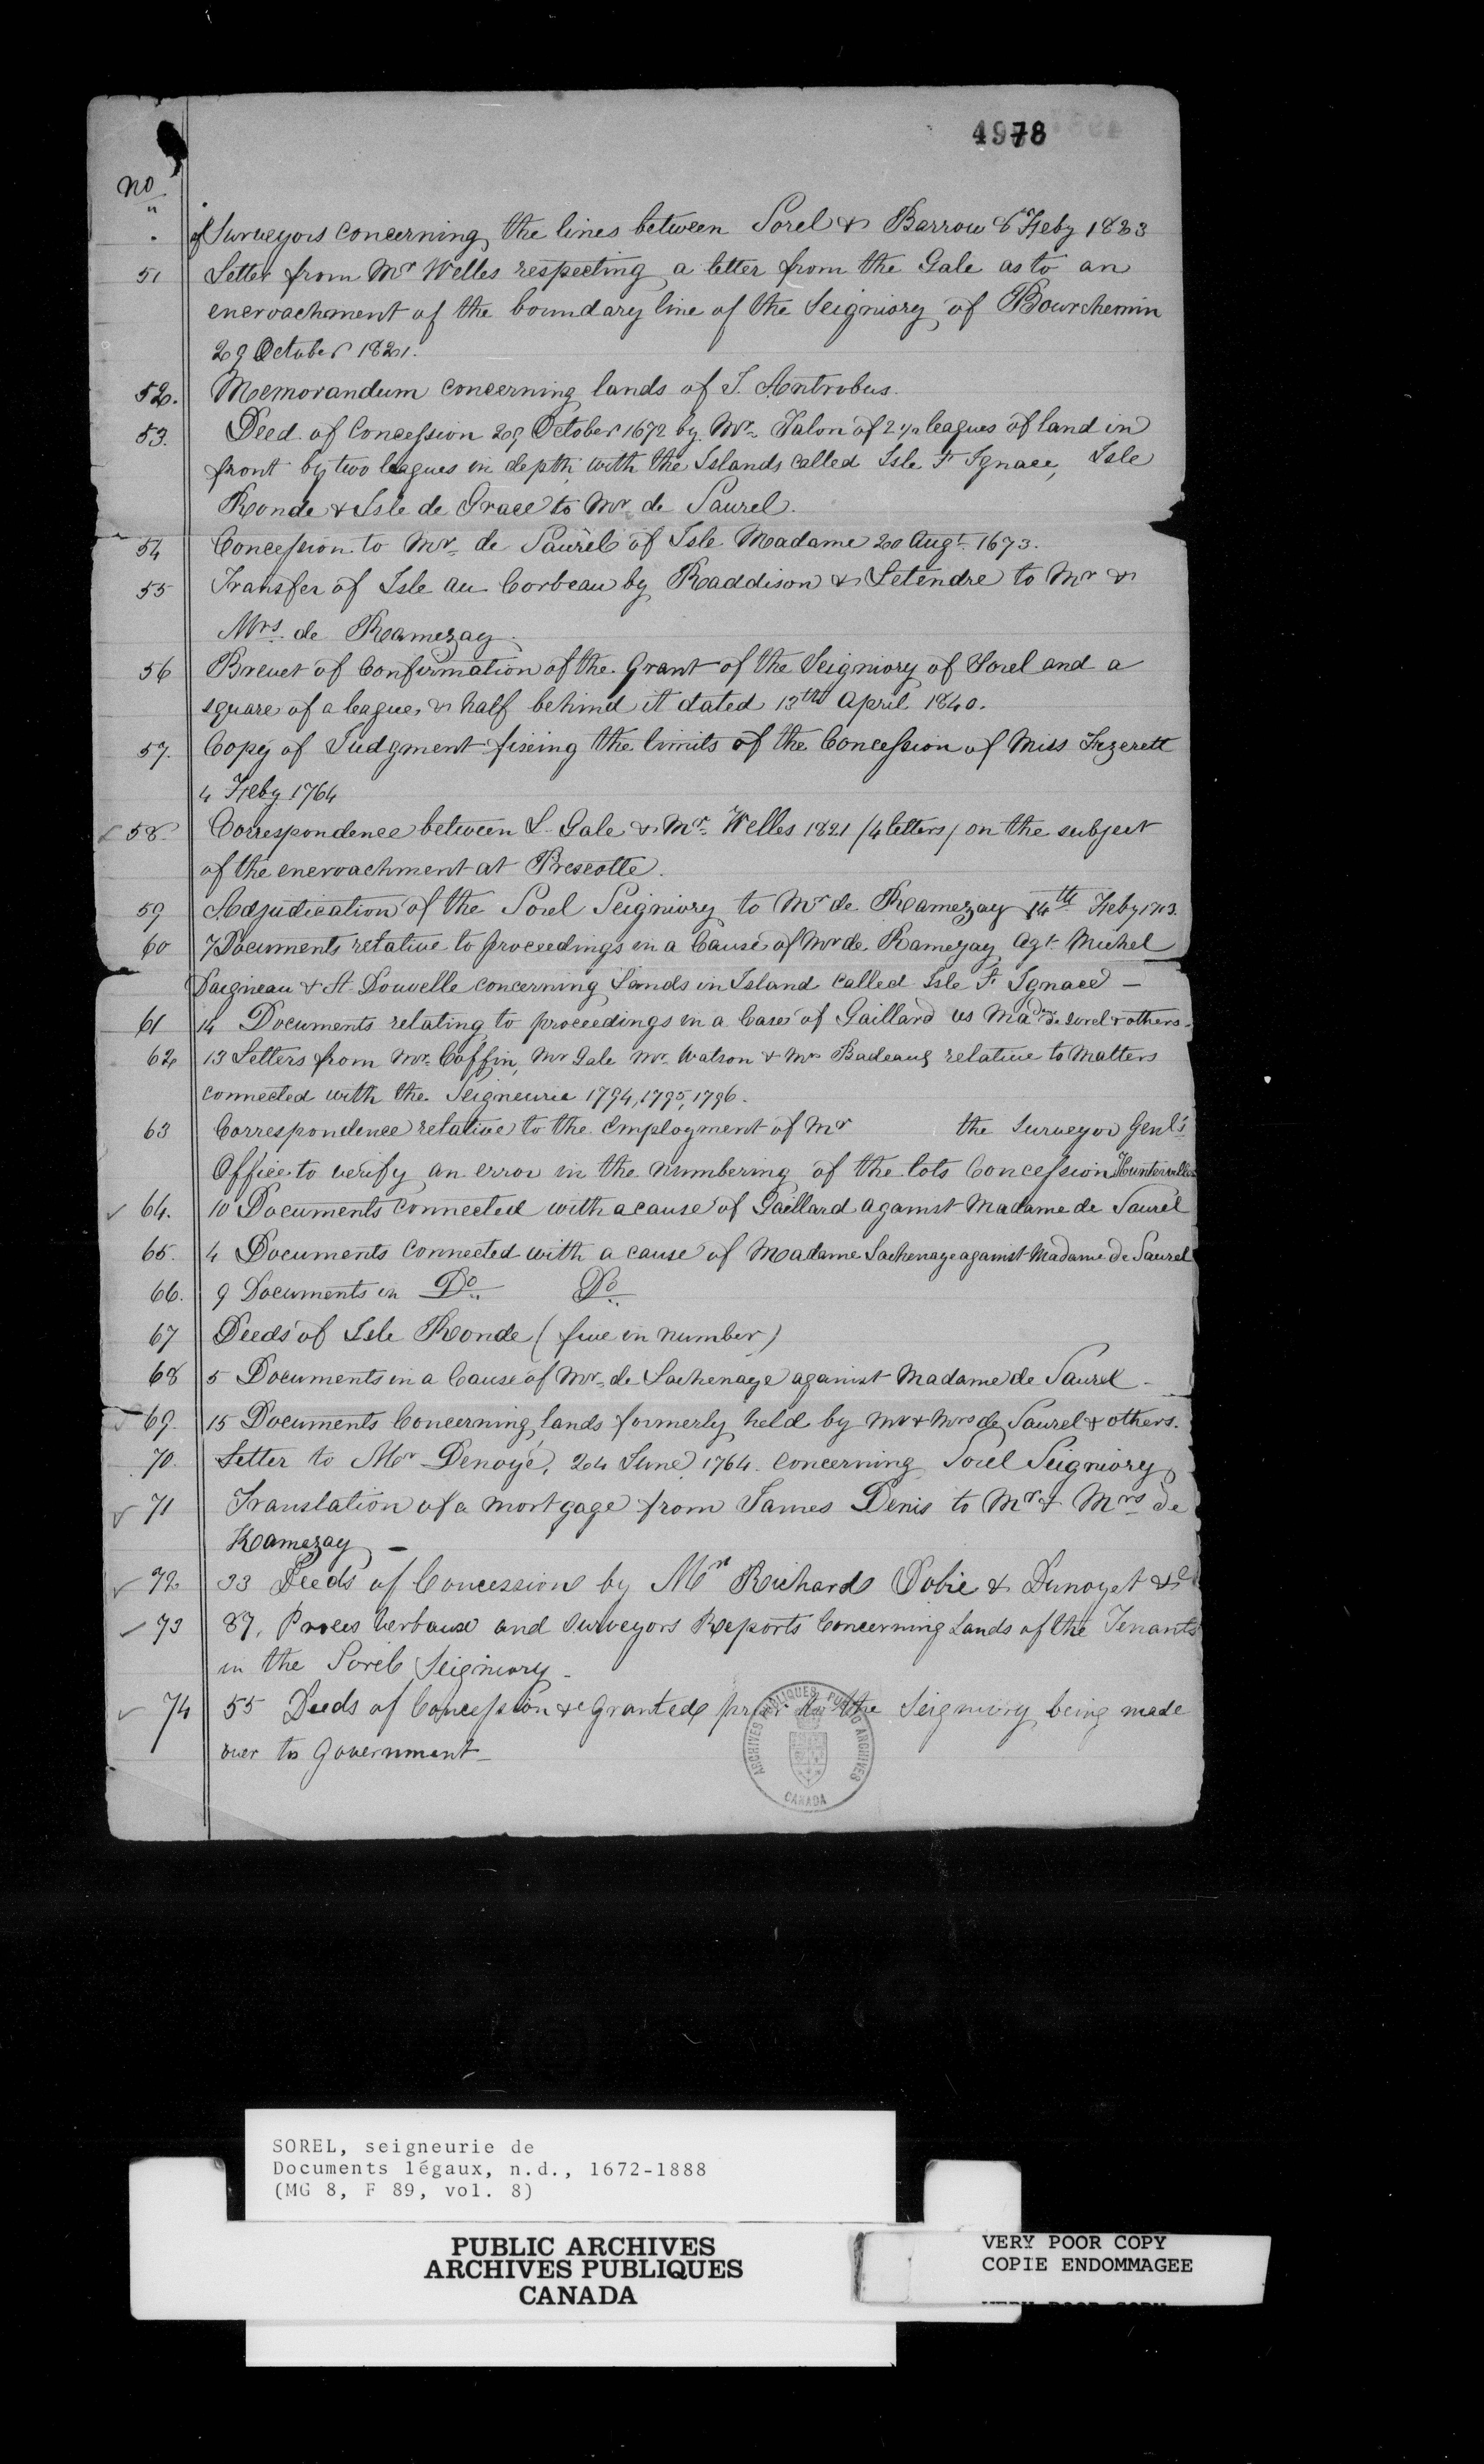 4978
No
" of Surveyors concerning the lines between Sorel & Barrow 6 Feby 1833
51 Letter from Mr Welles respecting a letter from the Gale as to an
encroachment of the boundary line of the Seigniory of Bourchemin
29 October 1821.
52. Memorandum concerning lands of J. Antrobus.
53. Deed of Concession 29 October 1672 by Mr. Talon of 2 1/2 leagues of land in
front by two leagues in depth, with the Islands called Isle St Ignace, Isle
Ronde & Isle de Grace to Mr. de Saurel.
54 Concession to Mr. de Saurel of Isle Madame 20 Augt 1673.
55 Transfer of Isle au Corbeau by Raddison & Letendre to Mr &
Mrs. de Ramezay.
56 Brevet of Confirmation of the Grant of the Seigniory of Sorel and a
square of a league & half behind it dated 13th April 1840.
57. Copy of Judgment fixing the limits of the Concession of Miss Fezerett
4 Feby 1764
58. Correspondence between S. Gale & Mr. Welles 1821 (4 letters) on the subject
of the encroachment at Prescotte.
59 Adjudication of the Sorel Seigniory to Mr de Ramezay 14th Feby 1713.
60 7 Documents relative to proceedings in a Cause of Mr de Ramezay agt Michel
Daigneau & St Douvelle concerning Lands in Island called Isle St Ignace –
61 14 Documents relating to proceedings in a Case of Gaillard vs Madme de Sorel & others.
62 13 Letters from Mr. Coffin, Mr Gale Mr. Watson & Mr Badeaux relative to Matters
connected with the Seigneurie 1794, 1795, 1796.
63 Correspondence relative to the employment of Mr the Surveyor Genl's
Office to verify an error in the numbering of the lots Concession Hunterville
64. 10 Documents connected with a cause of Gaillard against Madame de Saurel
65. 4 Documents connected with a cause of Madame Sachenage against Madame de Saurel
66. 9 Documents in Do Do
67 Deeds of Isle Ronde (five in number)
68 5 Documents in a Cause of Mr. de Sachenage against Madame de Saurel –
69. 15 Documents Concerning lands formerly held by Mr & Mrs de Saurel & others.
70. Letter to Mr Denoyé, 24 June 1764. concerning Sorel Seigniory
71 Translation of a mortgage from James Denis to Mr & Mrs de
Ramezay –
72. 33 Deeds of Concession by Mrs Richards Dobie & Dunoyet &c
73 87. Proces verbaux and Surveyors Reports Concerning Lands of the Tenants
in the Sorel Seigniory –
74 55 Deeds of Concession &c Granted prior to the Seigniory being made
over to Government –
ARCHIVES PUBLIQUES PUBLIC ARCHIVES
CANADA
SOREL, seigneurie de
Documents légaux, n.d., 1672-1888
(MG 8, F 89, vol. 8)
PUBLIC ARCHIVES
ARCHIVES PUBLIQUES
CANADA
VERY POOR COPY
COPIE ENDOMMAGEE
VERY POOR COPY